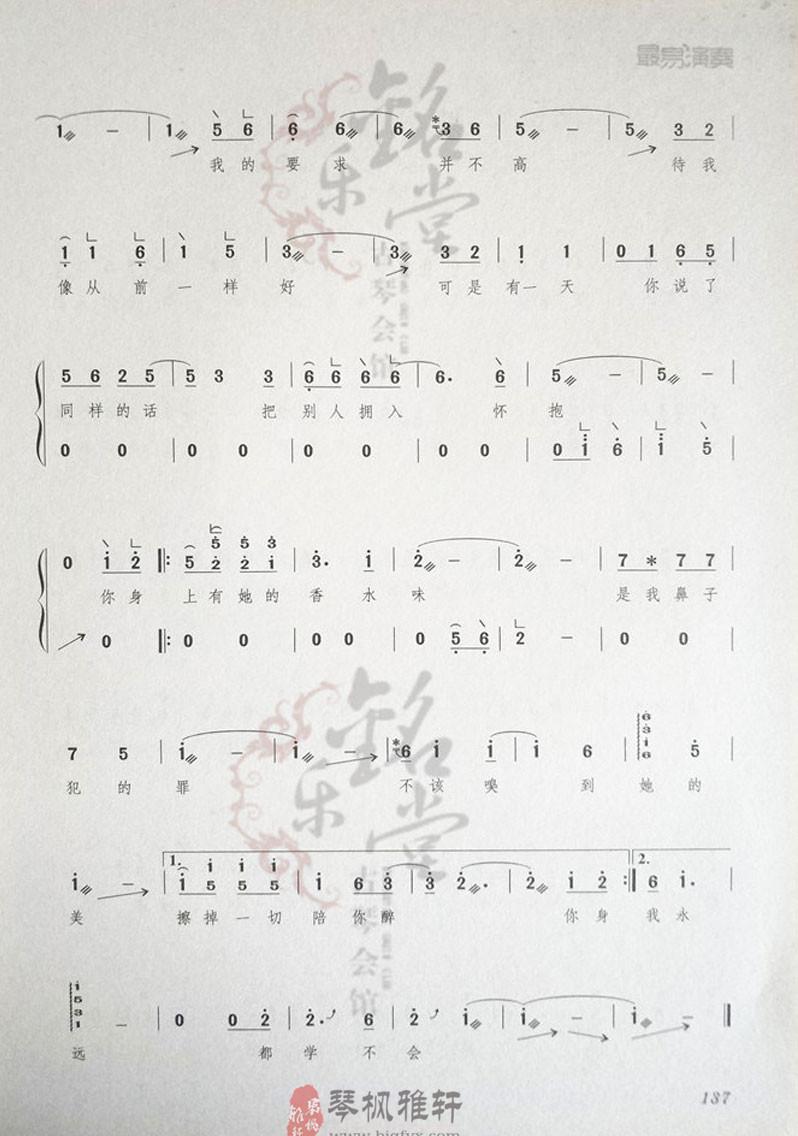 最易演奏
1 – | 1 5 6 | 6 6 | 6 3 6 | 5 – | 5 3 2 |
我的要求 并不高 待我
1 1 6 | 1 5 | 3 – | 3 3 2 | 1 1 | 0 1 6 5 |
像从前一样好 可是有一天 你说了
5 6 2 5 | 5 3 3 | 6 6 6 6 | 6. 6 | 5 – | 5 – |
同样的话 把别人拥入 怀抱
0 0 | 0 0 | 0 0 | 0 0 | 0 1 6 | 1 5 |
0 1 2 |: 5 5 5 3 2 2 1 | 3. 1 | 2 – | 2 – | 7 * 7 7 |
你身上有她的香水味 是我鼻子
0 |: 0 0 | 0 0 | 0 5 6 | 2 – | 0 0 |
7 5 | 1 – | 1 – | 6 1 1 | 1 6 | 6 3 1 6 5 |
犯的罪 不该嗅 到她的
1 – | 1. 1 1 1 1 5 5 5 | 1 6 3 | 3 2. | 2. 1 2 :| 2. 6 1. |
美 擦掉一切陪你醉 你身 我永
1 5 3 1 – | 0 0 2 | 2. 6 | 2 1 | 1 – | 1 – ||
远 都学不会
137
铭乐堂
古琴会馆
铭乐堂
古琴会馆
琴枫雅轩